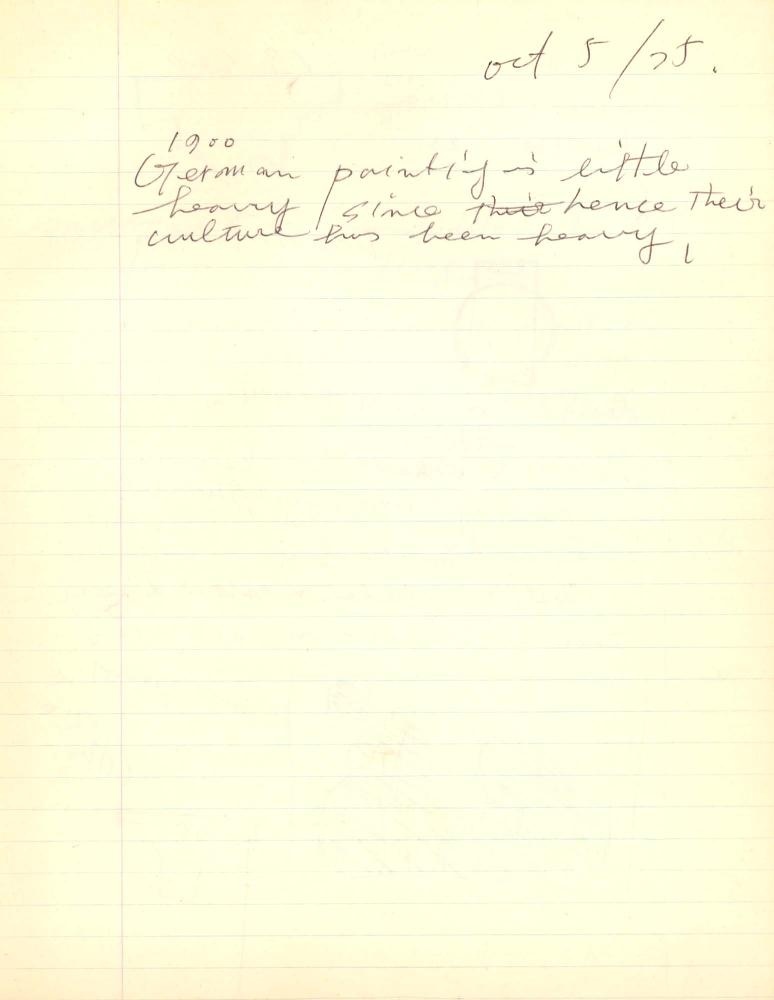 oct 5/75.
1900
German painting is little
heavy / since their hence their
culture has been heavy,